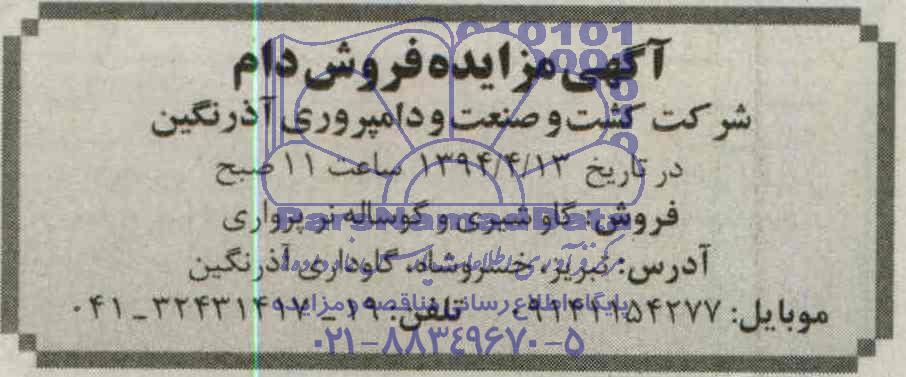 آگهی مزایده فروش دام
شرکت کشت و صنعت و دامپروری آذرنگین
در تاریخ ۱۳۹۴/۴/۱۳ ساعت ۱۱ صبح
فروش: گاو شیری و گوساله نر پرواری
ParsNamadData
آدرس: تبریز، خسروشاه، گاوداری آذرنگین
پایگاه اطلاع رسانی مناقصه مزایده
موبایل: ۰۹۱۴۴۱۵۴۲۷۷ تلفن: ۱۹ - ۳۲۴۳۱۴۱۷ - ۰۴۱
۰۲۱-۸۸۳۴۹۶۷۰-۵